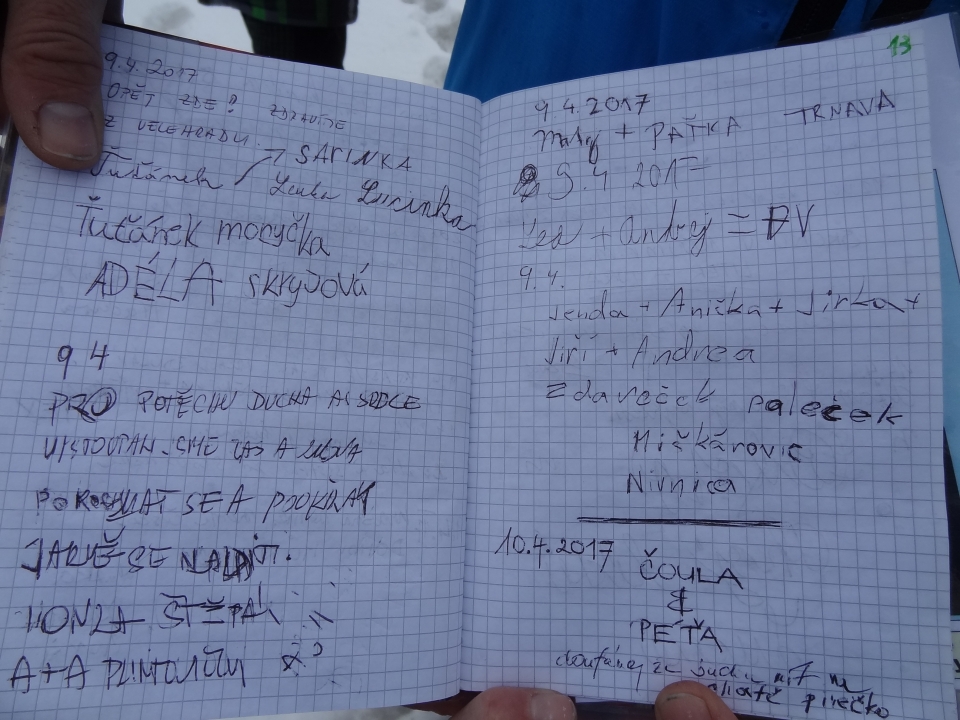 9.4.2017
OPĚT ZDE! ZDRAVÍME
Z VELEHRADU
SARINKA
Ťuťánek
Lenka Lucinka
Ťuťánek mocyčka
ADÉLA SKRÝJOVÁ
9 4
PRO POTĚCHU DUCHA A SRDCE
VYSTOUPALI SME ZAS A ZNOVA
POKOCHAT SE A POOKŘÁT
JARNĚ SE NALADIT.
HONZA ŠTĚPÁN
A+A
13
9 4.2017
+ PAŤKA TRNAVA
9.4 2017
+ Andrej = DV
9.4.
Jenda + Anička + Jirka +
Jiří + Andrea
Zdaréček paleček
Miškárovic
Nivnica
10.4.2017
ČOULA
&
PEŤA
doufáme že bude mít na
zlaté pivečko